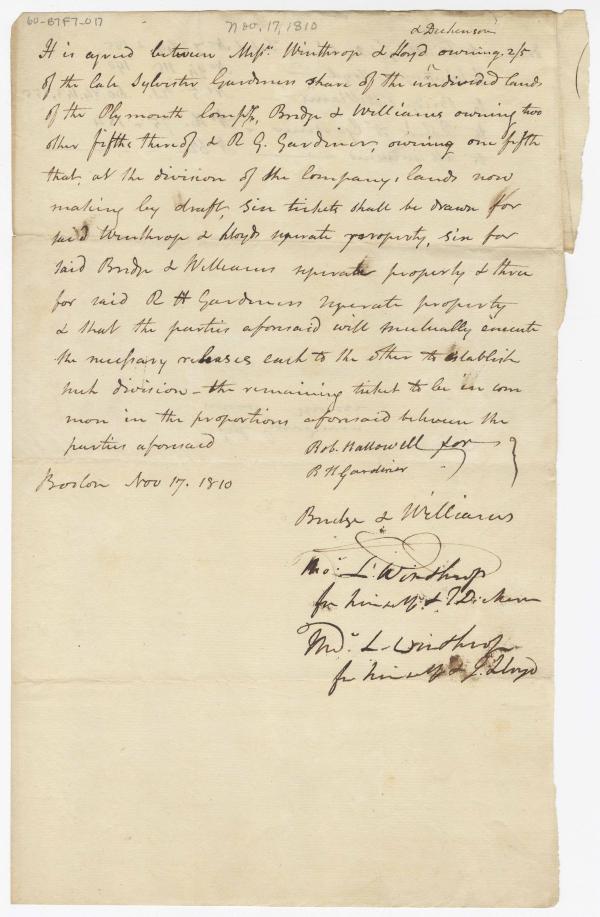 60-B7F7-017
Nov. 17, 1810
& Dickenson
It is agreed between Messrs Winthrop & Lloyd owning 2/5
of the late Sylvester Gardiners share of the undivided lands
of the Plymouth Compy, Bridge & Williams owning two
other fifths thereof & R G. Gardiner, owning one fifth
that, at the division of the Company, lands now
making by draft, six tickets shall be drawn for
said Winthrop & Lloyds seperate property, six for
said Bridge & Williams seperate property & three
for said R H Gardiners seperate property
& that the parties aforesaid will mutually execute
the necessary releases each to the other to establish
such division – the remaining ticket to be in com
mon in the proportions aforesaid between the
parties aforesaid
Rob. Hallowell for
R H Gardiner
Boston Nov 17. 1810
Bridge & Williams
Tho. L. Winthrop
for himself & T Dickson
Tho. L. Winthrop
for himself & J. Lloyd